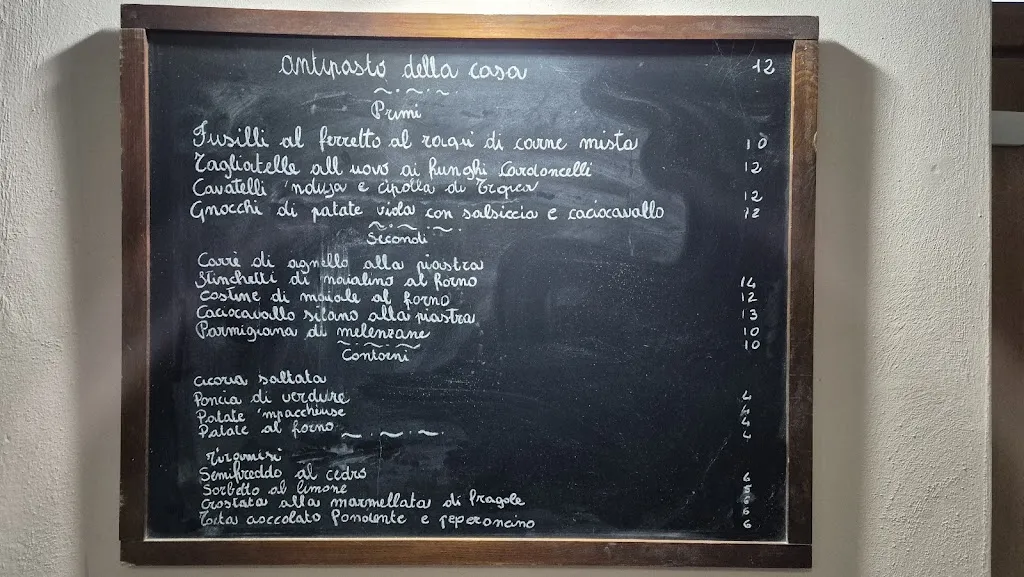 Antipasto della casa 12
Primi
Fusilli al ferretto al ragù di carne mista 10
Tagliatelle all uovo ai funghi Cardoncelli 12
Cavatelli 'nduja e cipolla di Tropea 12
Gnocchi di patate viola con salsiccia e caciocavallo 12
Secondi
Carrè di agnello alla piastra 14
Stinchetti di maialino al forno 12
Costine di maiale al forno 13
Caciocavallo silano alla piastra 10
Parmigiana di melenzane 10
Contorni
Cicoria saltata 4
Poncia di verdure 4
Patate 'mpacchiuse 4
Patate al forno 4
Tiramisù 6
Semifreddo al cedro
Sorbetto al limone
Crostata alla marmellata di fragole 6
Torta cioccolato fondente e peperoncino 6